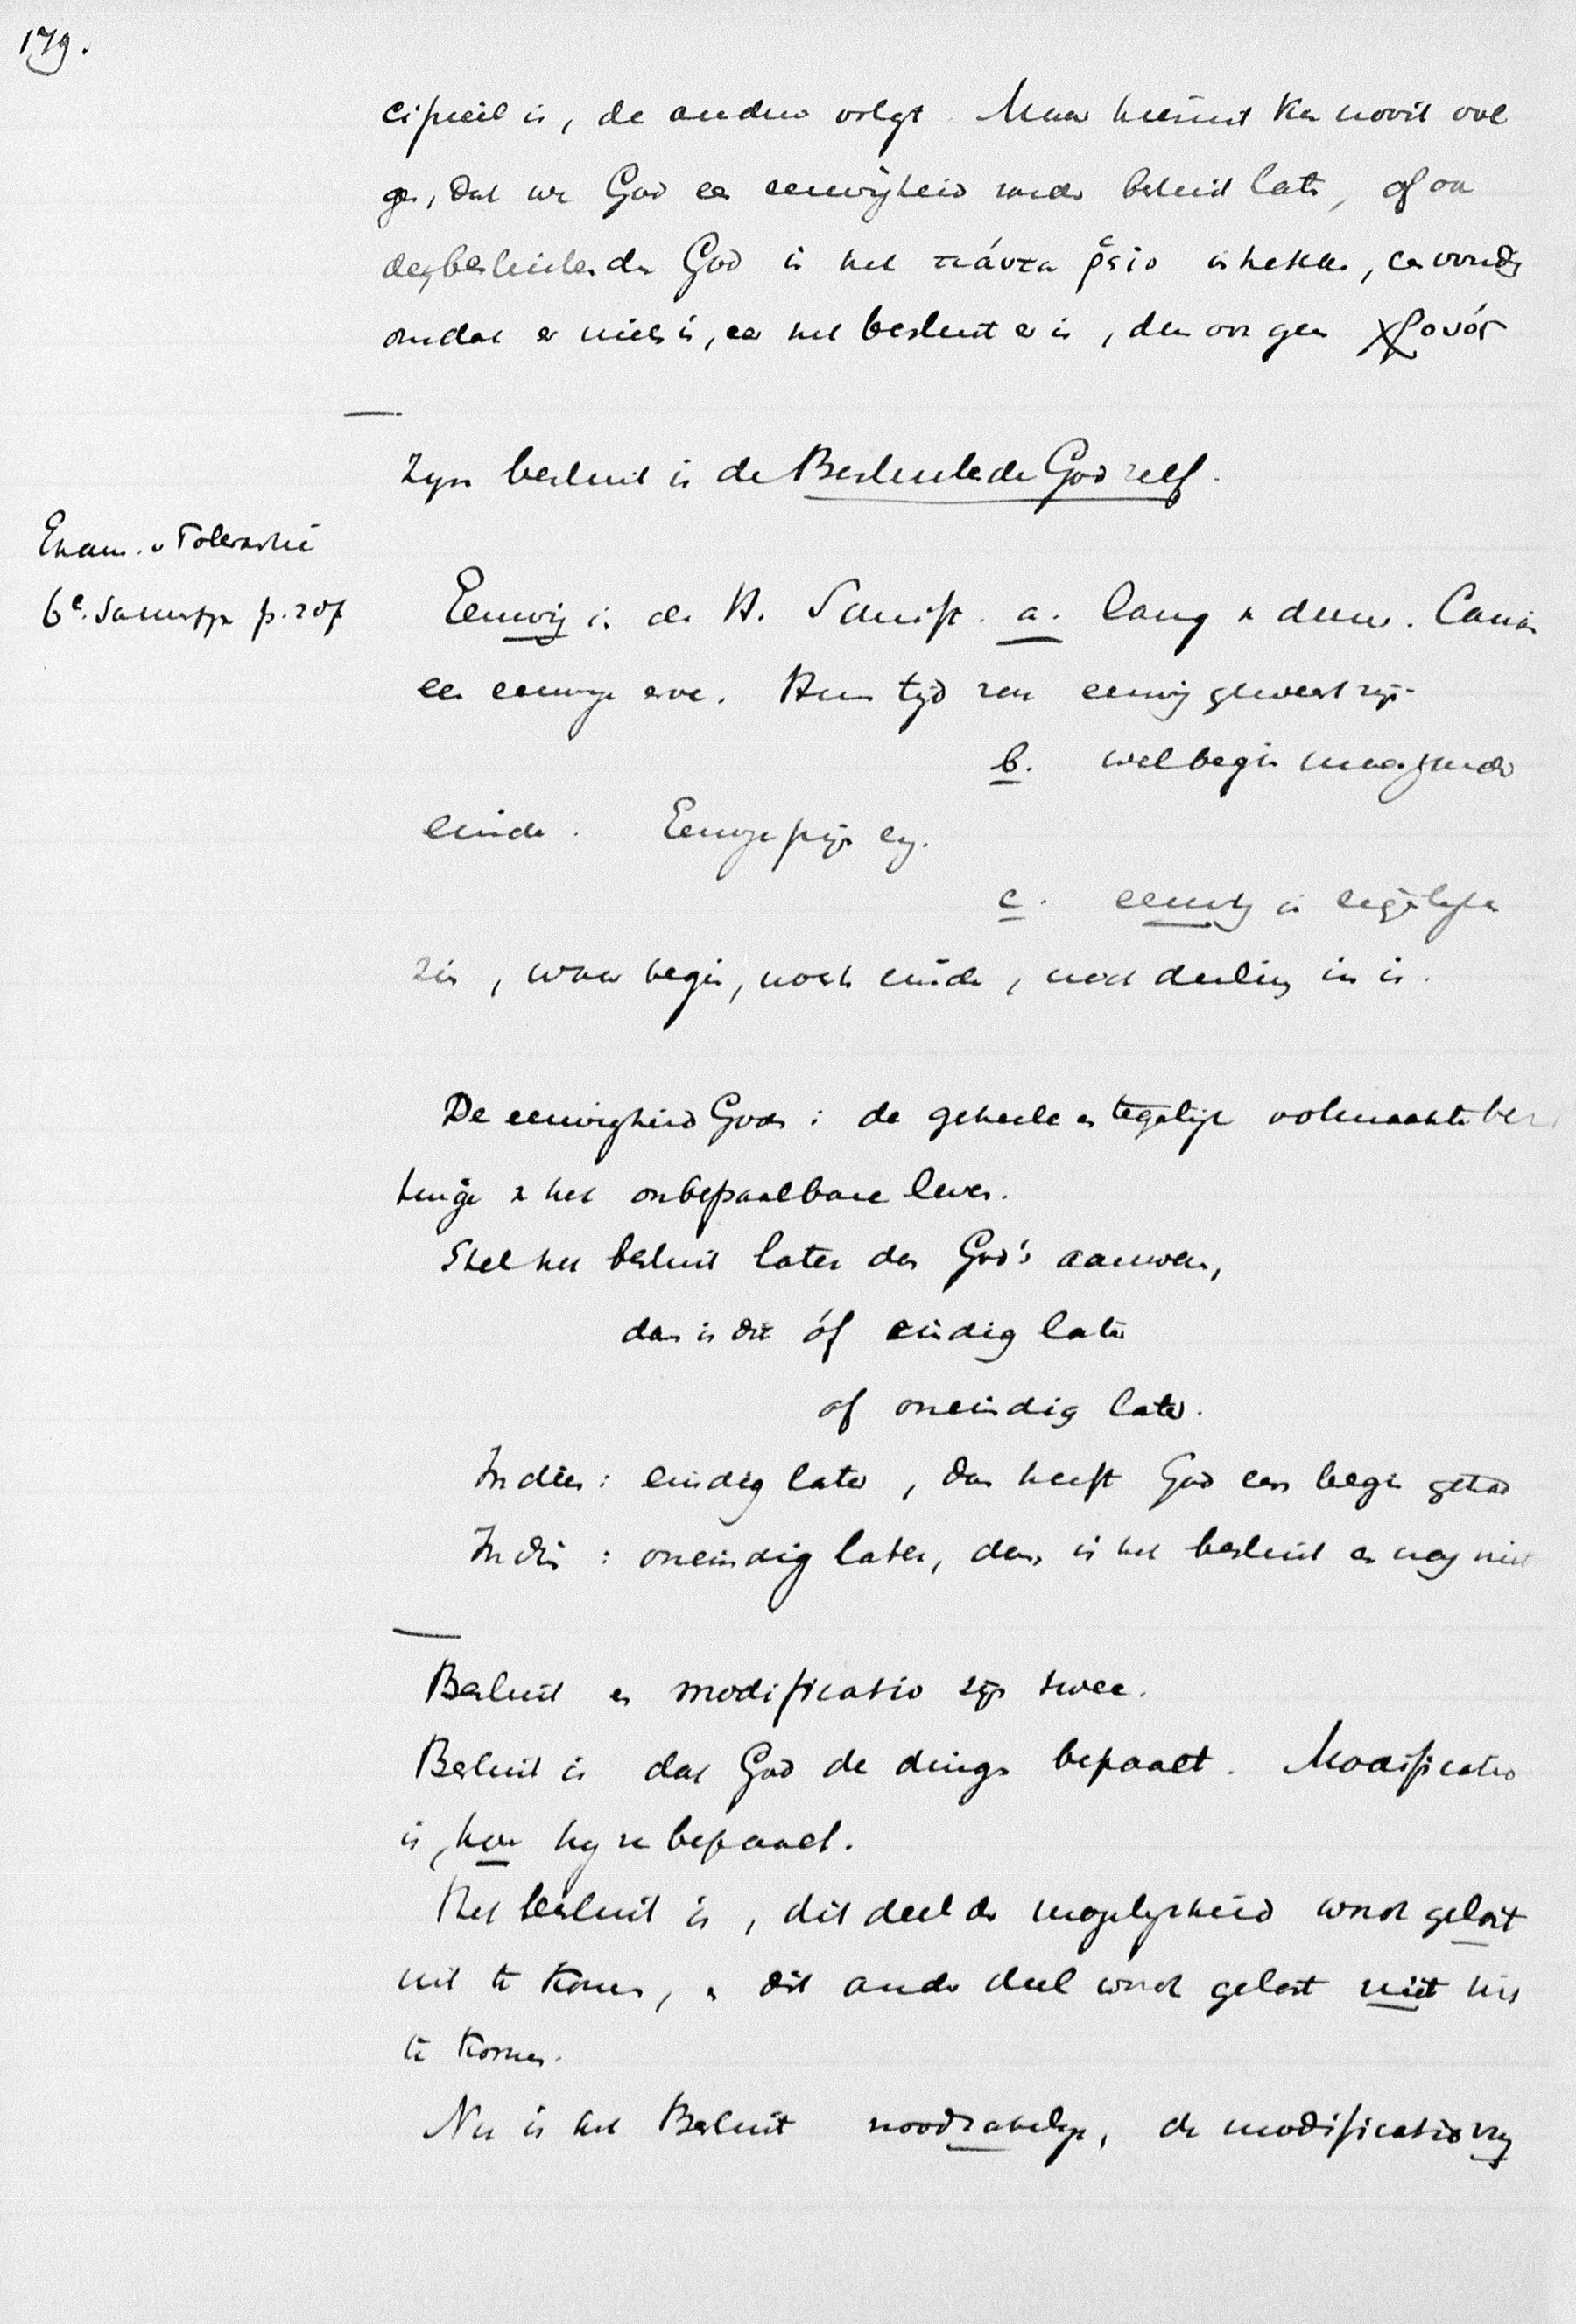 179.
cipieel is, de andere volgt. Maar hieruit kan nooit vol
gen, dat we God een eeuwigheid zonder besluit laten, of on
der besluitenden God is het πάντα ῥεῖ, eenvoudig
omdat er niets is, eer het besluit er is, dan ook geen χρονός
Zijn besluit is de Besluitende God zelf.
Exam. v Tolerantie
6e. Samenspr p. 207
Eeuwig in de H. Schrift. a. lang v duur. Canaän
een eeuwige erve. Hun tijd zou eeuwig geweest zijn
b. wel begin maar zonder
einde. Eeuwige pijn
c. eeuwig in eigenlijken
zin, waar begin, noch einde, noch deeling in is.
De eeuwigheid Gods: de geheele en tegelijk volmaakte bez
tinge v het onbepaalbare leven.
Stel het besluit later dan God's aanwezen,
dan is dit óf eindig later
of oneindig later.
Indien: eindig later, dan heeft God een begin gehad
Indien: oneindig later, dan is het besluit er nog niet
Besluit en modificatio zijn twee.
Besluit is dat God de dingen bepaalt. Modificatio
is, hoe hij ze bepaalt.
Het besluit is, dit deel der mogelijkheid wordt gelast
uit te komen, en dit ander deel wordt gelast niet uit
te komen.
Nu is het Besluit noodzakelijk, de modificatio vrij